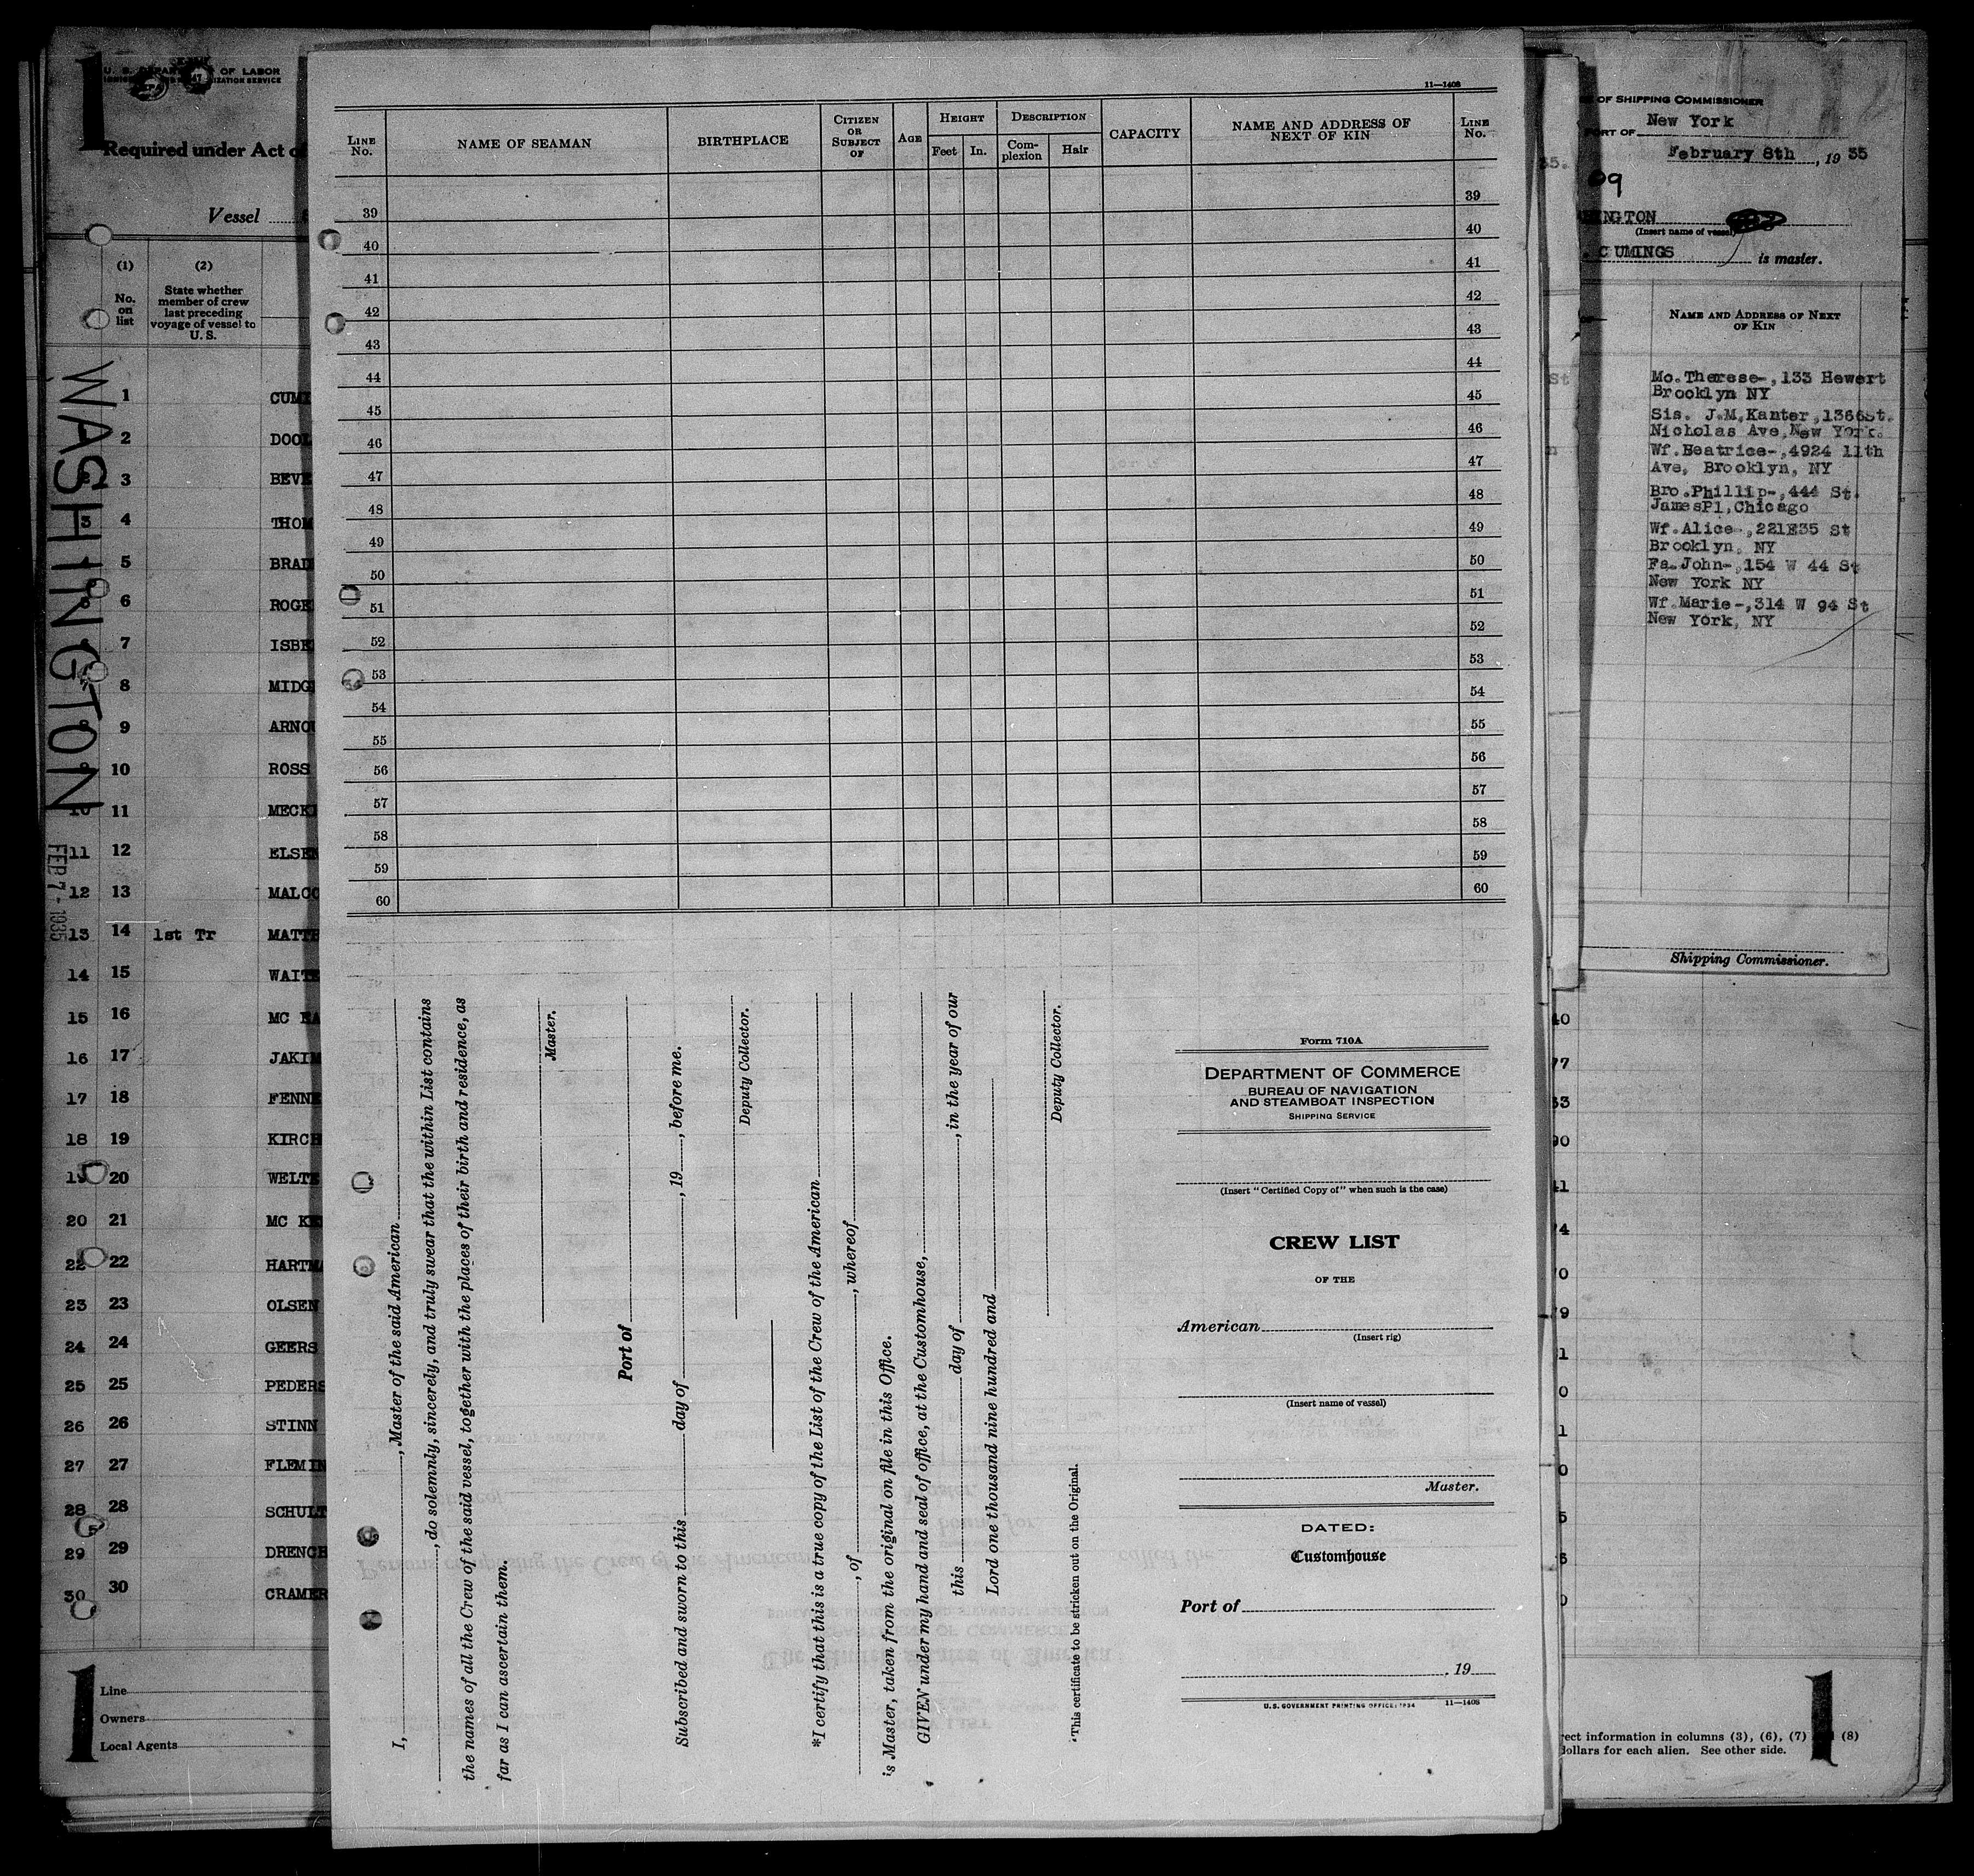 OF LABOR
IZATION SERVICE
1
Required under Act
Vessel
(1)
No.
on
list
(2)
State whether
member of crew
last preceding
voyage of vessel to
U. S.
WASHINGTON
FEB 7 - 1935
1
2
3
4
5
6
7
8
9
10 ROSS
10 11
11 12
12 13
13 14 1st Tr
14 15
15 16
16 17
17 18
18 19
19 20
20 21
22 22
23 23 OLSEN
24 24 GEERS
25 25
26 26 STINN
27 27
28 28
29 29
30 30
1
Line
Owners
Local Agents
11—1408
LINE No.
NAME OF SEAMAN
BIRTHPLACE
CITIZEN OR SUBJECT OF
AGE
HEIGHT
Feet In.
DESCRIPTION
Complexion Hair
CAPACITY
NAME AND ADDRESS OF NEXT OF KIN
LINE No.
39 39
40 40
41 41
42 42
43 43
44 44
45 45
46 46
47 47
48 48
49 49
50 50
51 51
52 52
53 53
54 54
55 55
56 56
57 57
58 58
59 59
60 60
I, , Master of the said American
, do solemnly, sincerely, and truly swear that the within List contains
the names of all the Crew of the said vessel, together with the places of their birth and residence, as
far as I can ascertain them.
Master.
Port of
Subscribed and sworn to this day of , 19 , before me.
Deputy Collector.
*I certify that this is a true copy of the List of the Crew of the American
, of , whereof
is Master, taken from the original on file in this Office.
GIVEN under my hand and seal of office, at the Customhouse,
this day of , in the year of our
Lord one thousand nine hundred and
Deputy Collector.
*This certificate to be stricken out on the Original.
Form 710A
DEPARTMENT OF COMMERCE
BUREAU OF NAVIGATION
AND STEAMBOAT INSPECTION
SHIPPING SERVICE
(Insert "Certified Copy of" when such is the case)
CREW LIST
OF THE
American
(Insert rig)
(Insert name of vessel)
Master.
DATED:
Customhouse
Port of
, 19
U.S. GOVERNMENT PRINTING OFFICE: 1934 11—1408
OF SHIPPING COMMISSIONER
PORT OF New York
February 8th , 19 35
INGTON
(Insert name of vessel)
CUMINGS is master.
NAME AND ADDRESS OF NEXT
OF KIN
Mo.Therese-,133 Hewert
Brooklyn NY
Sis. J.M.Kanter,1366St.
Nicholas Ave,New York.
Wf.Beatrice-,4924 11th
Ave, Brooklyn, NY
Bro.Phillip-,444 St.
JamesPl,Chicago
Wf.Alice-,221E35 St
Brooklyn, NY
Fa.John-,154 W 44 St
New York NY
Wf.Marie-,314 W 94 St
New York, NY
Shipping Commissioner.
rect information in columns (3), (6), (7) (8)
dollars for each alien. See other side.
1